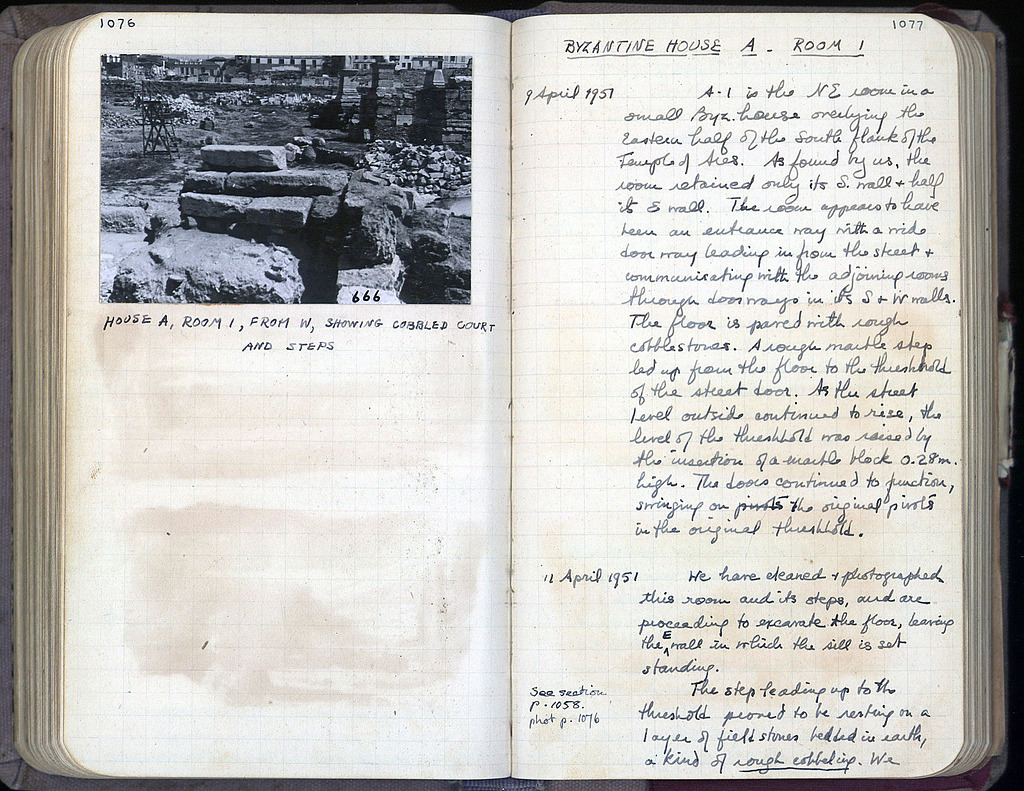 1076
666
HOUSE A, ROOM 1, FROM W, SHOWING COBBLED COURT
AND STEPS
1077
BYZANTINE HOUSE A - ROOM 1
9 April 1951 A-1 is the NE room in a
small Byz. house overlying the
Eastern half of the South flank of the
Temple of Ares. As found by us, the
room retained only its S. wall + half
its E wall. The room appears to have
been an entrance way with a wide
door way leading in from the street +
communicating with the adjoining rooms
through doorways in its S + W walls.
The floor is paved with rough
cobblestones. A rough marble step
led up from the floor to the threshold
of the street door. As the street
level outside continued to rise, the
level of the threshold was raised by
the insertion of a marble block 0.28m.
high. The doors continued to function,
swinging on pivots the original pivots
in the original threshold.
11 April 1951 We have cleaned + photographed
this room and its steps, and are
proceeding to excavate the floor, leaving
the E wall in which the sill is set
standing.
See section
p. 1058.
phot p. 1076
The step leading up to the
threshold proved to be resting on a
layer of field stones bedded in earth,
a kind of rough cobbling. We